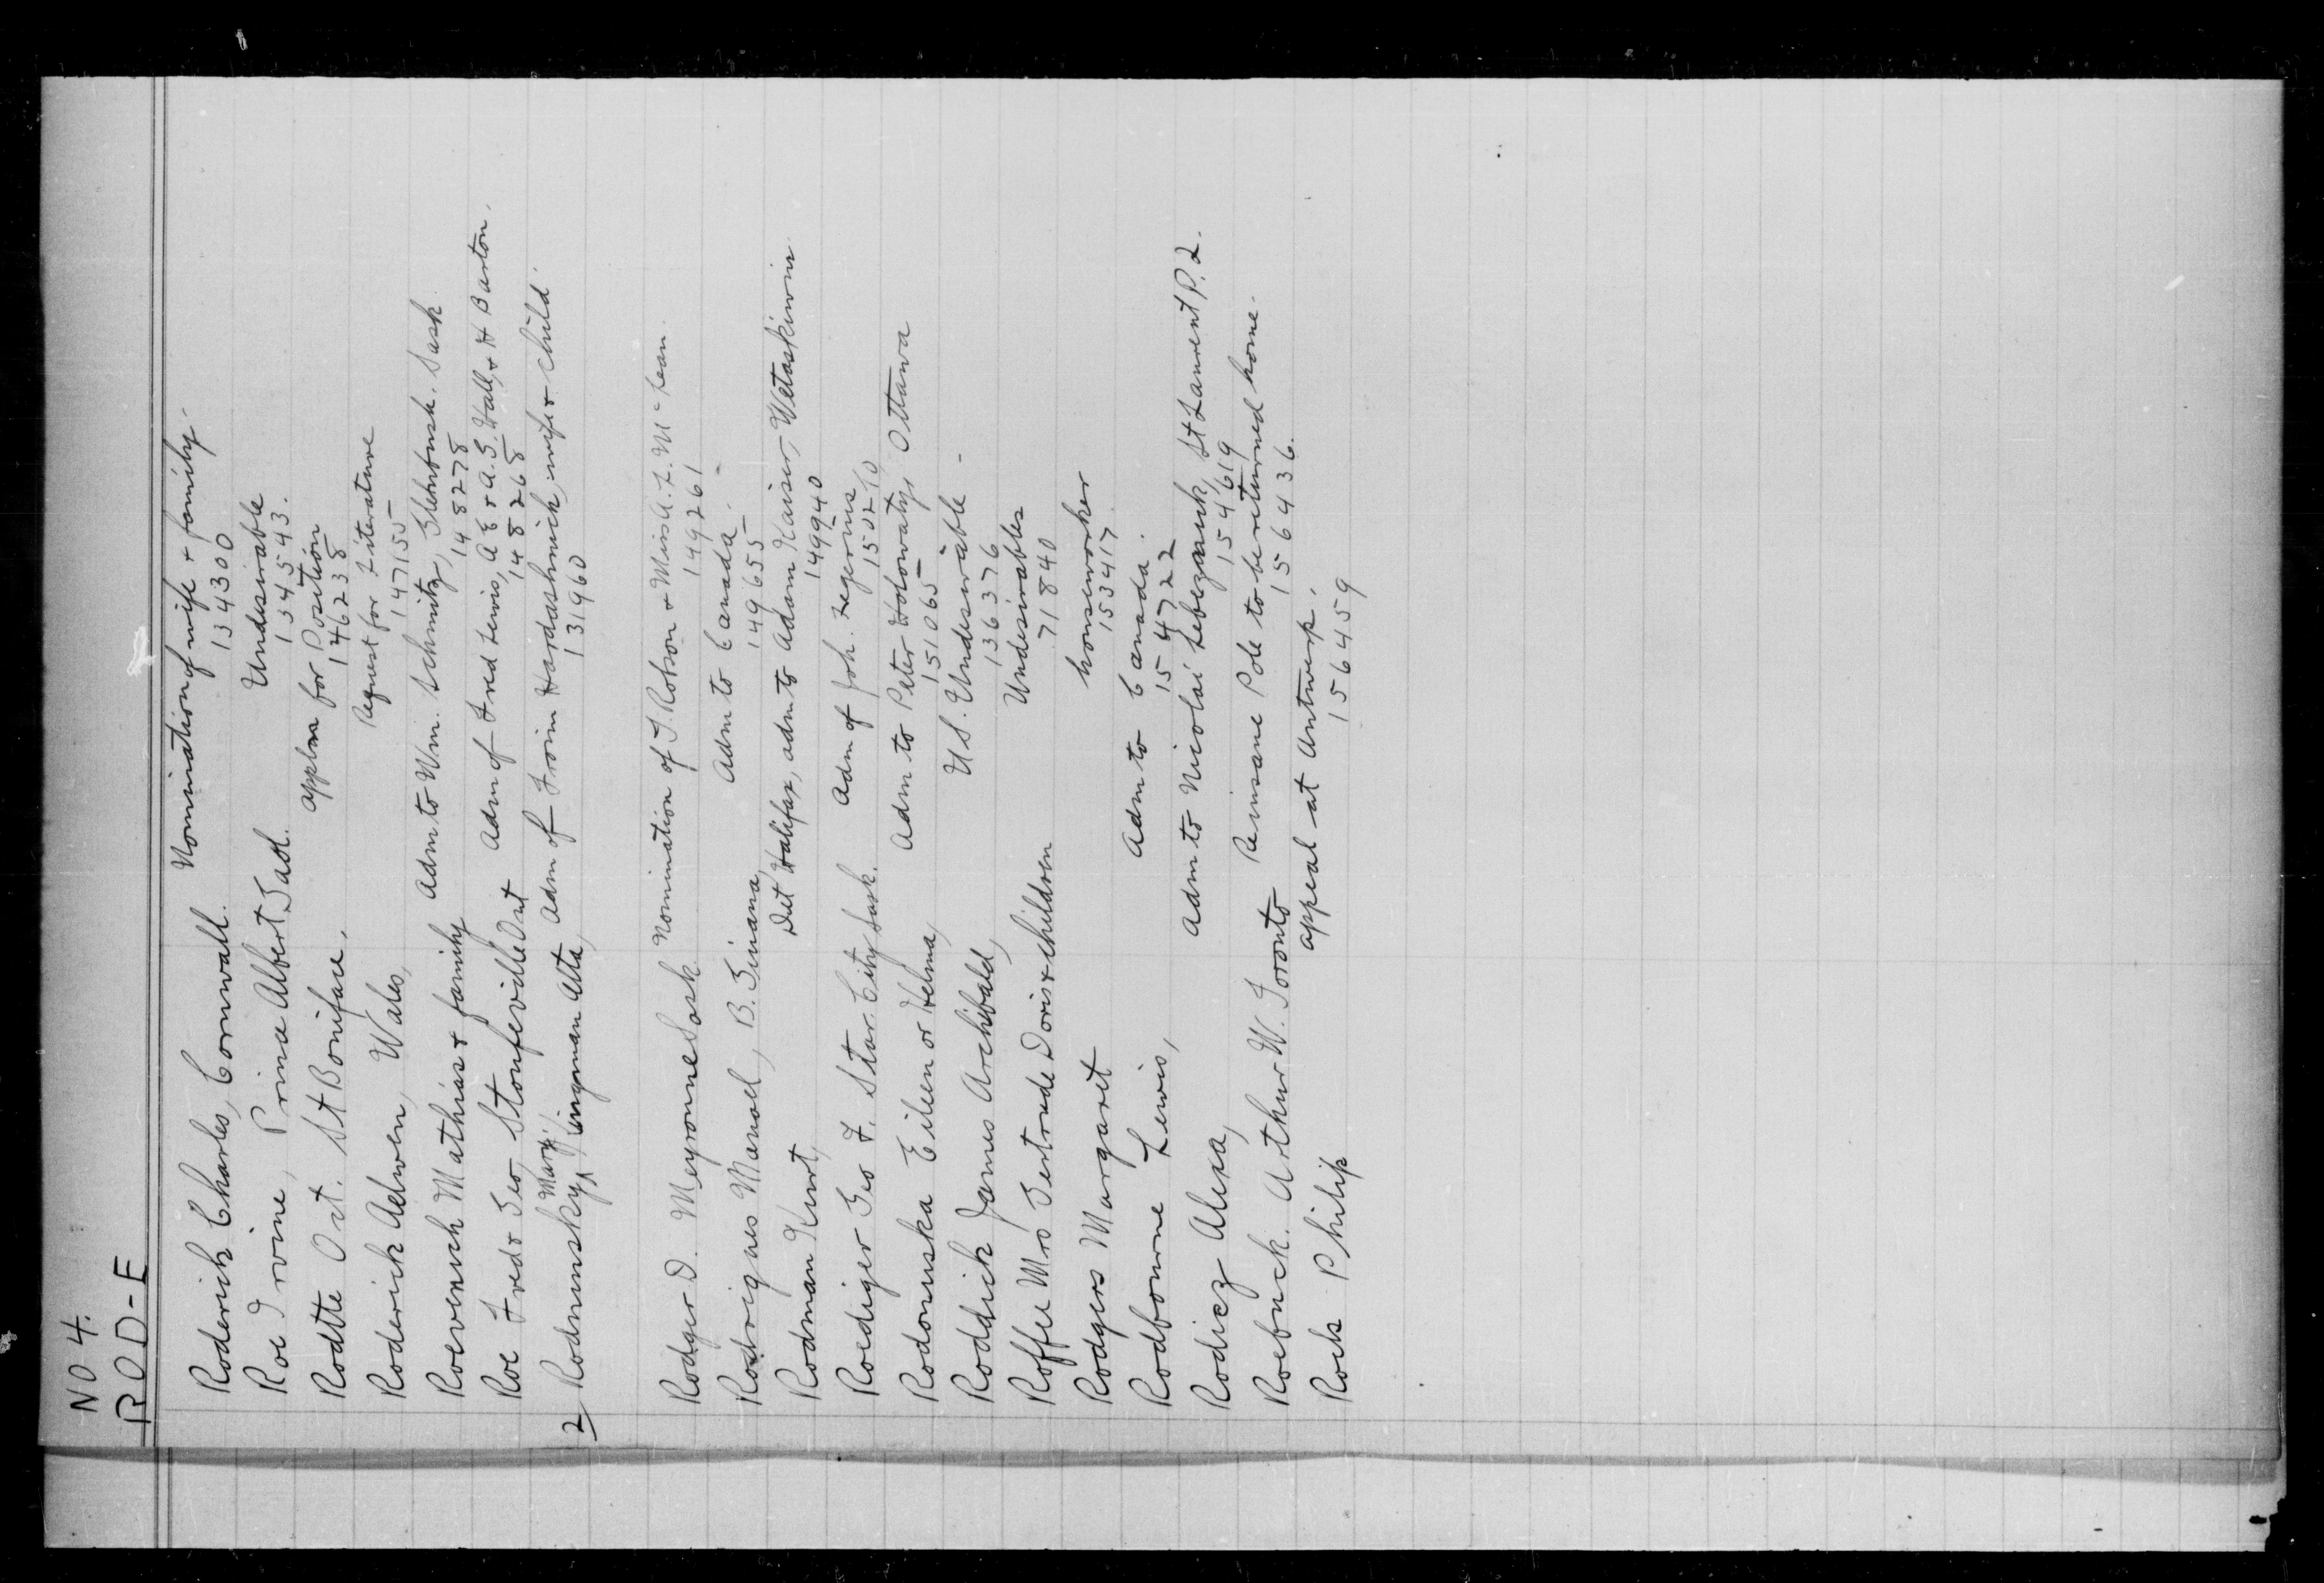 NO 4.
ROD-E
Roderick Charles, Cornwall. Nomination of wife & family.
134300
Roe Irvine, Prince Albert Sask. Undesirable
134543.
Rodtte Oct. St Boniface. Appln for Position
146238
Roderick Adwen, Wales, Request for Literature
147155
Roevenich Mathias & family Adm to Wm. Schmitz, Sask
148278
Roe Fred & Geo, Stoufeville Ont Adm of Fred Lewis, A E & A.G. Hall, & H Barton.
148268
2/ Rodninsky, Mary, Bingman Alta, Adm of Froim Hardashnick, wife & child.
131960
Rodger D. Meyronne Sask Nomination of J. Robson & Miss A. L. McLean.
149261
Rodrigues Manoel, B. Guiana, Adm to Canada.
149655
Rodman Kurt, Det Halifax, adm to Adam Kaiser, Wetaskiwin.
149940
Roediger Geo F. Star City Sask. Adm of Joh. Zegerius
150210
Rodonuska Eileen or Helma, Adm to Peter Holowaty, Ottawa
151065
Roddick James Archibald, U.S. Undesirable -
136376
Roffee Mrs Gertrude Doris & children Undesirables
71840
Rodgers Margaret houseworker
153417
Rodbourne Lewis, Adm to Canada.
154722
Rodicz Alexa, Adm to Nicolai Lebezanik, St Laurent P.Q.
154619
Roebuck. Arthur W. Toronto Re insane Pole to be returned home.
156436.
Rock Philip appeal at Antwerp.
156459